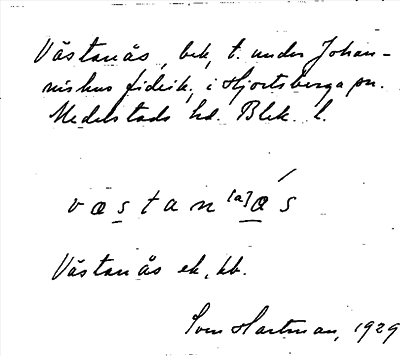 Västanås, bek, t. under Johan-
nishus fideik, i Hjortsberga sn.
Medelstads hd. Blek. l.
västan[a]ås
Västanås ek, kb.
Sven Hartman, 1929